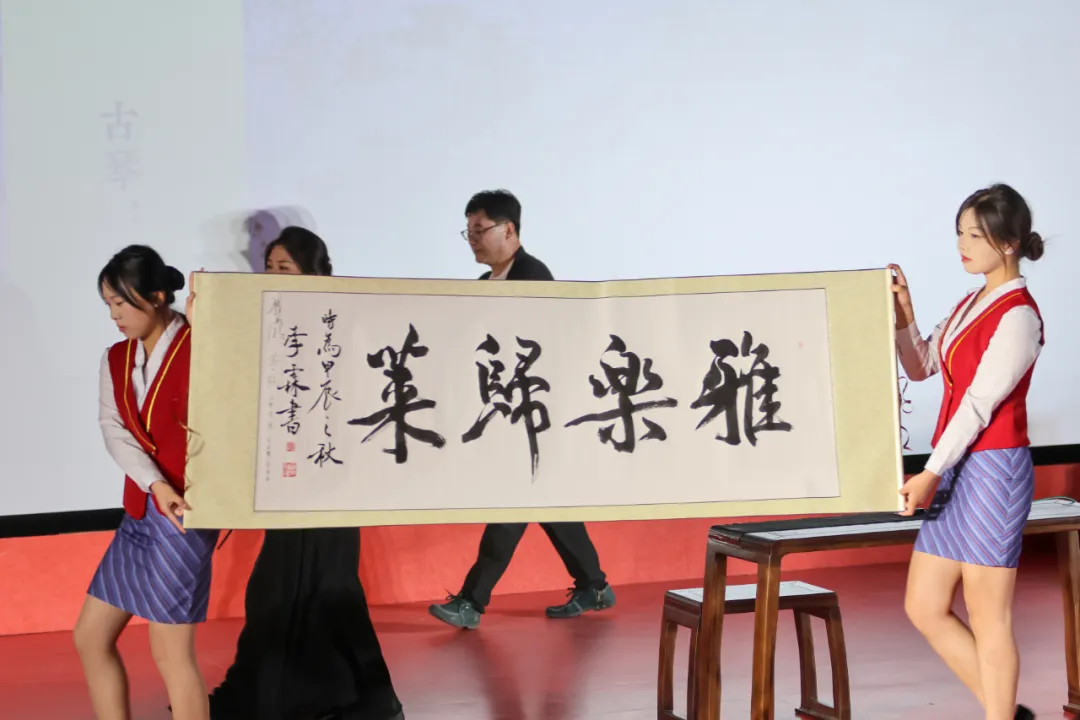 雅樂歸萊
時為甲辰之秋
李霖書
古琴